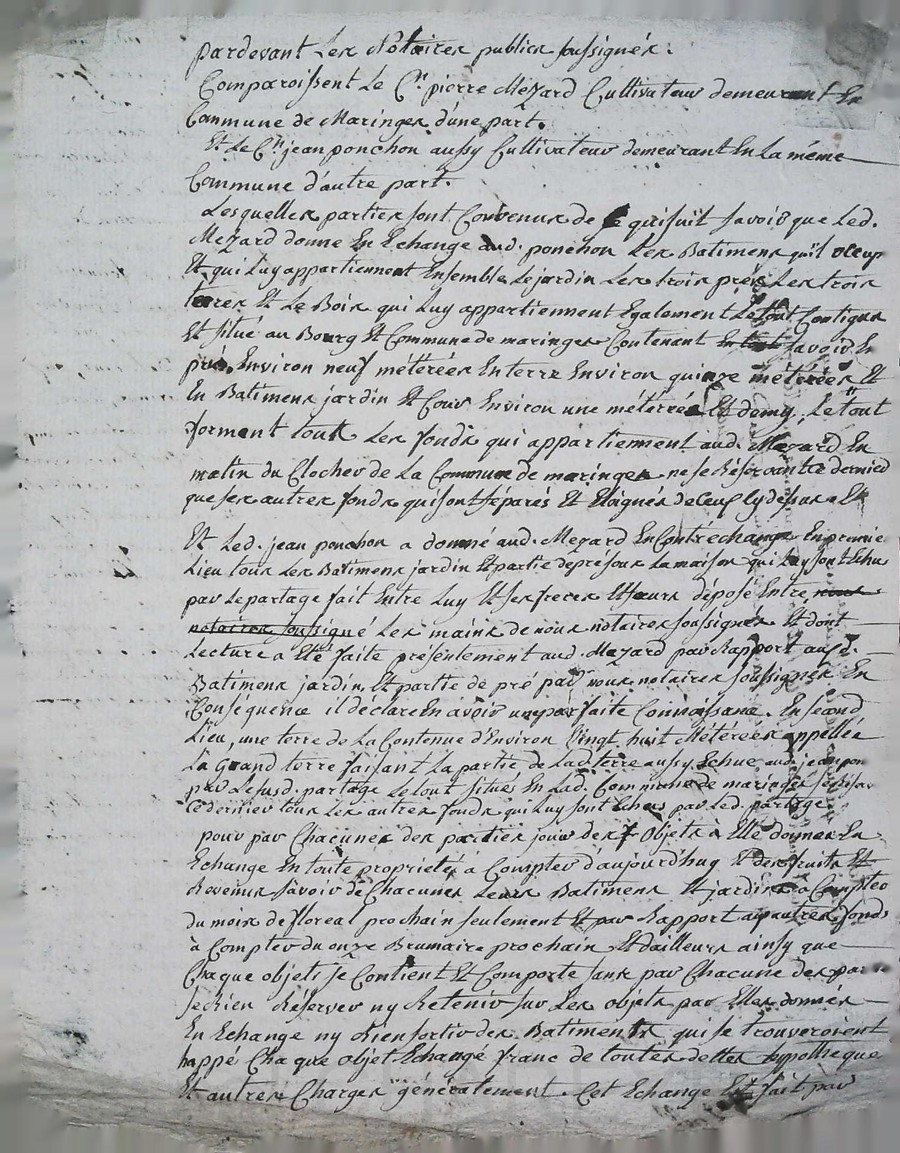 pardevant Les Notaires publics soussignés.
Comparoissent Le C.n pierre Mézard Cultivateur demeurant En
Commune de Maringes d'une part.
Et Le C.n jean ponchon aussy Cultivateur demeurant En La même
Commune d'autre part.
Lesquelles parties sont Convenus de Ce qui suit savoir que Led.
Mezard donne En Echange aud. ponchon Les Batimens qu'il occup
Et qui Luy appartiennent Ensemble Le jardin Les trois prés Les trois
terres Et Le Bois qui Luy appartiennent Egalement Le tout Contigus
Et situé au Bourg Et Commune de maringes Contenant En tout savoir En
prés Environ neuf métérées En terre Environ quinze métérées Et
En Batimens jardin Et Cour Environ une métérée Et demy, Le tout
forment tous Les fonds qui appartiennent aud. Mezard En
matin du Clocher de La Commune de maringes ne se Réservant Ce dernier
que ses autres fonds qui sont séparés Et Eloignés de Ceux Cy dessus
Et Led. jean ponchon a donné aud. Mezard En Contréchange En premie
Lieu tous Les Batimens jardin Et partie de pré sous La maison qui Luy sont Echus
par Le partage fait Entre Luy Et ses freres Et sœurs déposé Entre nous
notaires soussigné Les mains de nous notaires soussignés Et dont
Lecture a Eté faite présentement aud. Mezard par Rapport auxd.
Batimens jardin Et partie de pré par nous notaires soussignés En
Conséquence il déclare En avoir une parfaite Connoissance. En second
Lieu, une terre de La Contenue d'Environ Vingt huit Métérées appellée
La Grand terre faisant La partie de Lad. terre aussy Echue aud. jean pon
par Le susd. partage Le tout situés En Lad. Commune de maringes se Réser
Ce dernier tous Les autres fonds qui Luy sont Echus par Led. partage.
pour par Chacunes des parties jouir des Objets à Elle donnés En
Echange En toute propriété à Compter d'aujourd'huy Et des fruits Et
Revenus savoir de Chacunes Leurs Batimens Et jardins à Compter
du mois de floreal prochain seulement Et par Rapport aux autres fonds
à Compter du onze Brumaire prochain Et d'ailleurs ainsy que
Chaque objets se Contient Et Comporte sans par Chacune des par
se Rien Réserver ny Retenir sur Les objets par Elles donnés
En Echange ny Rien sortir des Batiments qui se trouveroient
happé Chaque objet Echangé franc de toutes dettes hypotheque
Et autres Charges généralement. Cet Echange Est fait par